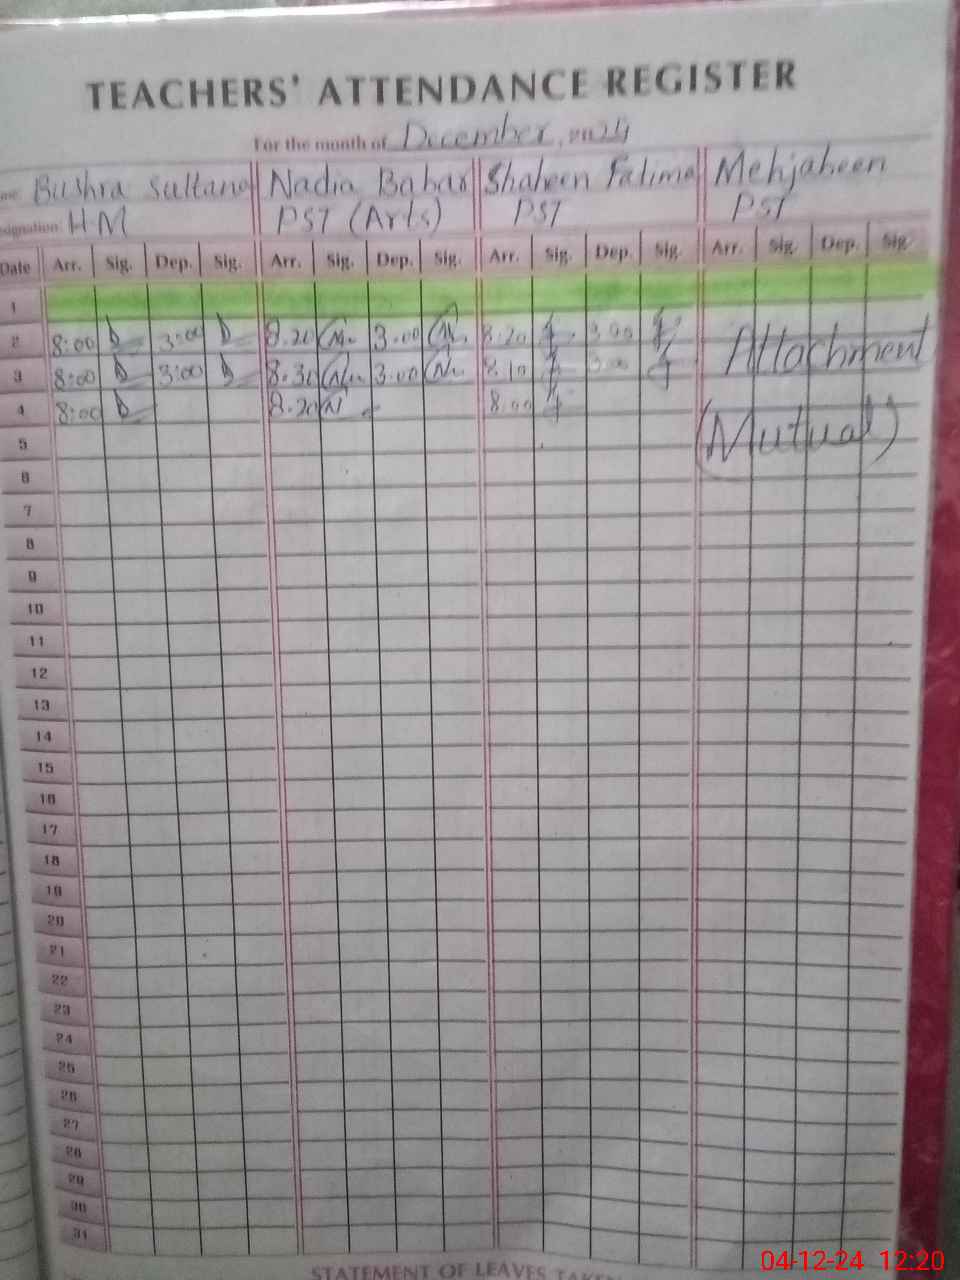 TEACHERS' ATTENDANCE REGISTER
For the month of December, 2024
Bushra Sultana Nadia Babar Shaheen Fatima Mehjabeen
HM PST (Arts) PST PST
Date Arr. Sig. Dep. Sig. Arr. Sig. Dep. Sig. Arr. Sig. Dep. Sig. Arr. Sig. Dep. Sig.
1
2 8:00 3:00 8.20 3.00 8.20 3.00 Attachment
3 8:00 3:00 8.30 3.00 8.10 3.00
4 8:00 8.20 8.00 (Mutual)
5
6
7
8
9
10
11
12
13
14
15
16
17
18
19
20
21
22
23
24
25
26
27
28
29
30
31
STATEMENT OF LEAVES TAKEN
04-12-24 12:20